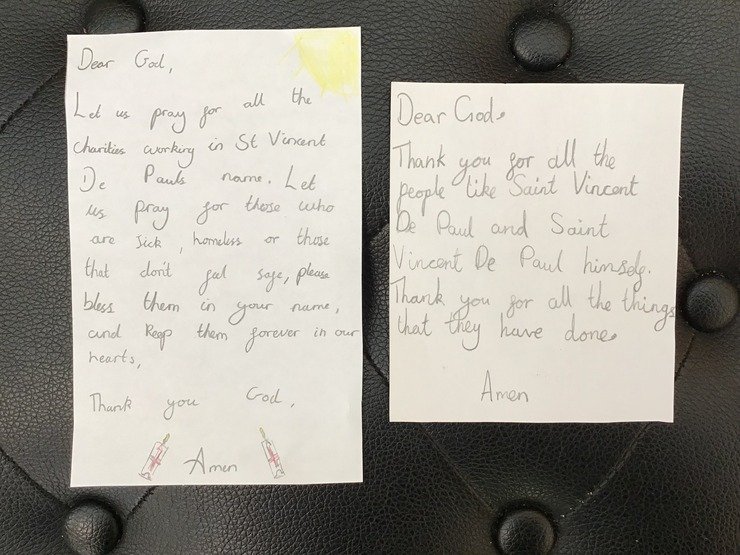 Dear God,
Let us pray for all the
charities working in St Vincent
De Pauls name. Let
us pray for those who
are sick, homeless or those
that don't feel safe, please
bless them in your name,
and keep them forever in our
hearts,
Thank you God,
Amen
Dear God.
Thank you for all the
people like Saint Vincent
De Paul and Saint
Vincent De Paul himself.
Thank you for all the things
that they have done.
Amen